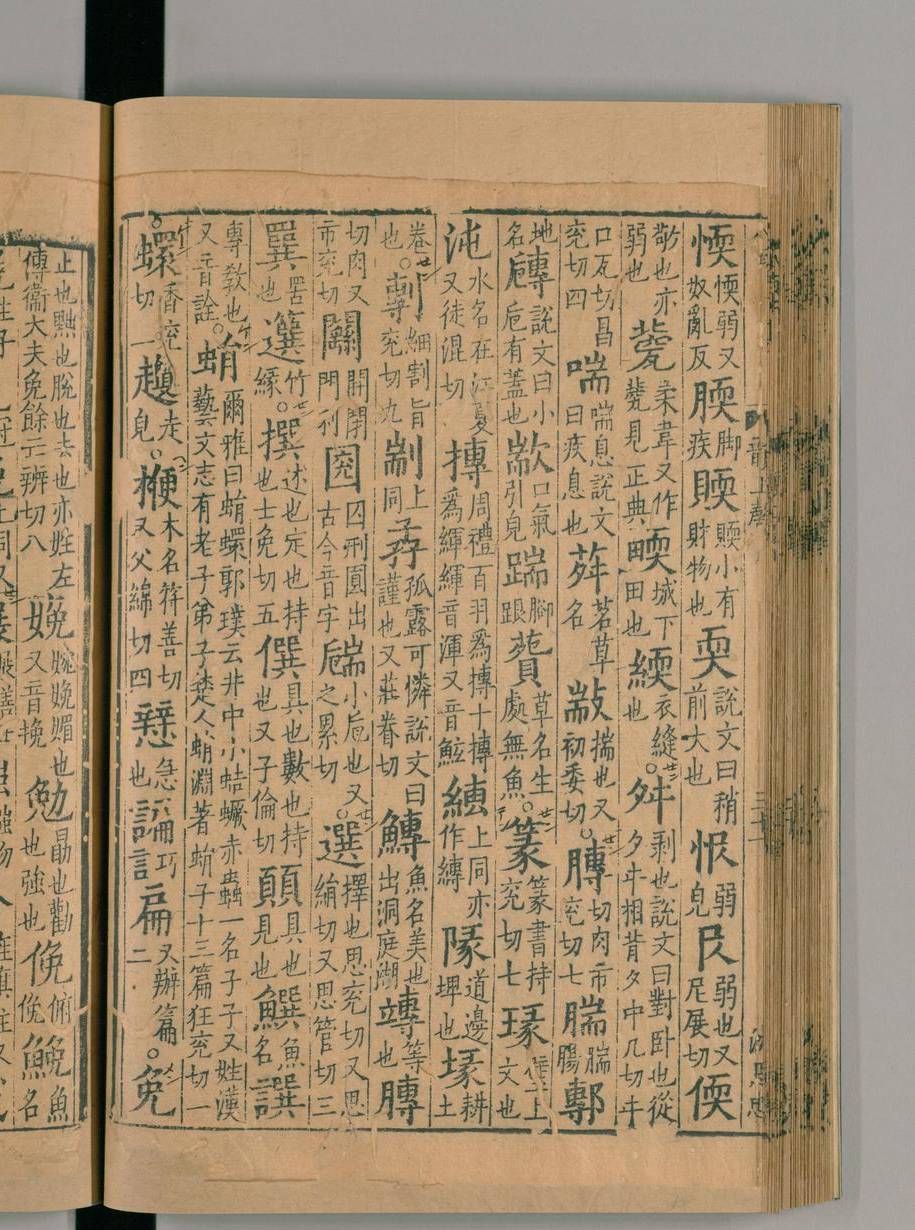 愞愞弱又奴亂反腝脚疾䞂䞂小有財物也耎說文曰稍前大也㤛弱皃㞋弱也又尼展切偄
㪏也亦弱也㼱柔韋又作㼱見正典城下田也緛衣縫也○舛剥也說文曰對卧也從夕㐄相背夕中几切㐄
口瓦切昌兖切四喘喘息說文曰疾息也荈茗草名㪜揣也又初委切○膞切肉市兖切七腨腨腸鄟
地名𡭐說文曰小巵有蓋也歂口氣引皃踹腳跟草名生處無魚○篆篆書持兖切七瑑璧上文也
沌水名在江夏又徒混切摶周禮百羽爲摶十摶爲緷緷音渾又音鮌縳上同亦作縳隊道邊埤也㙇耕土
卷也○剸細割旨兖切九剬上同孨孤露可憐說文曰謹也又莊眷切鱄魚名美也出洞庭湖竱等也膞
切肉又市兖切開閉門利圌囚刑圓出古今音字小巵也又之累切○選擇也思兖切又思絹切又思管切三
罟也竹緣○撰述也定也持也士免切五僎具也數也又子倫切顨具也持見也魚名譔
專教也又音詮○蜎爾雅曰蜎蠉郭璞云井中小蛣蟩赤蟲一名孑孓又姓漢藝文志有老子弟子楚人蜎淵著蜎子十三篇狂兖切一
○蠉香兖切一走皃○楩木名符善切又父綿切四急也諞巧言扁又辦篇二○免
止也黜也脫也去也亦姓左傳衞大夫免餘亡辨切八娩婉娩媚也又音挽勉勗也勸也強也俛俯俛鮸魚名